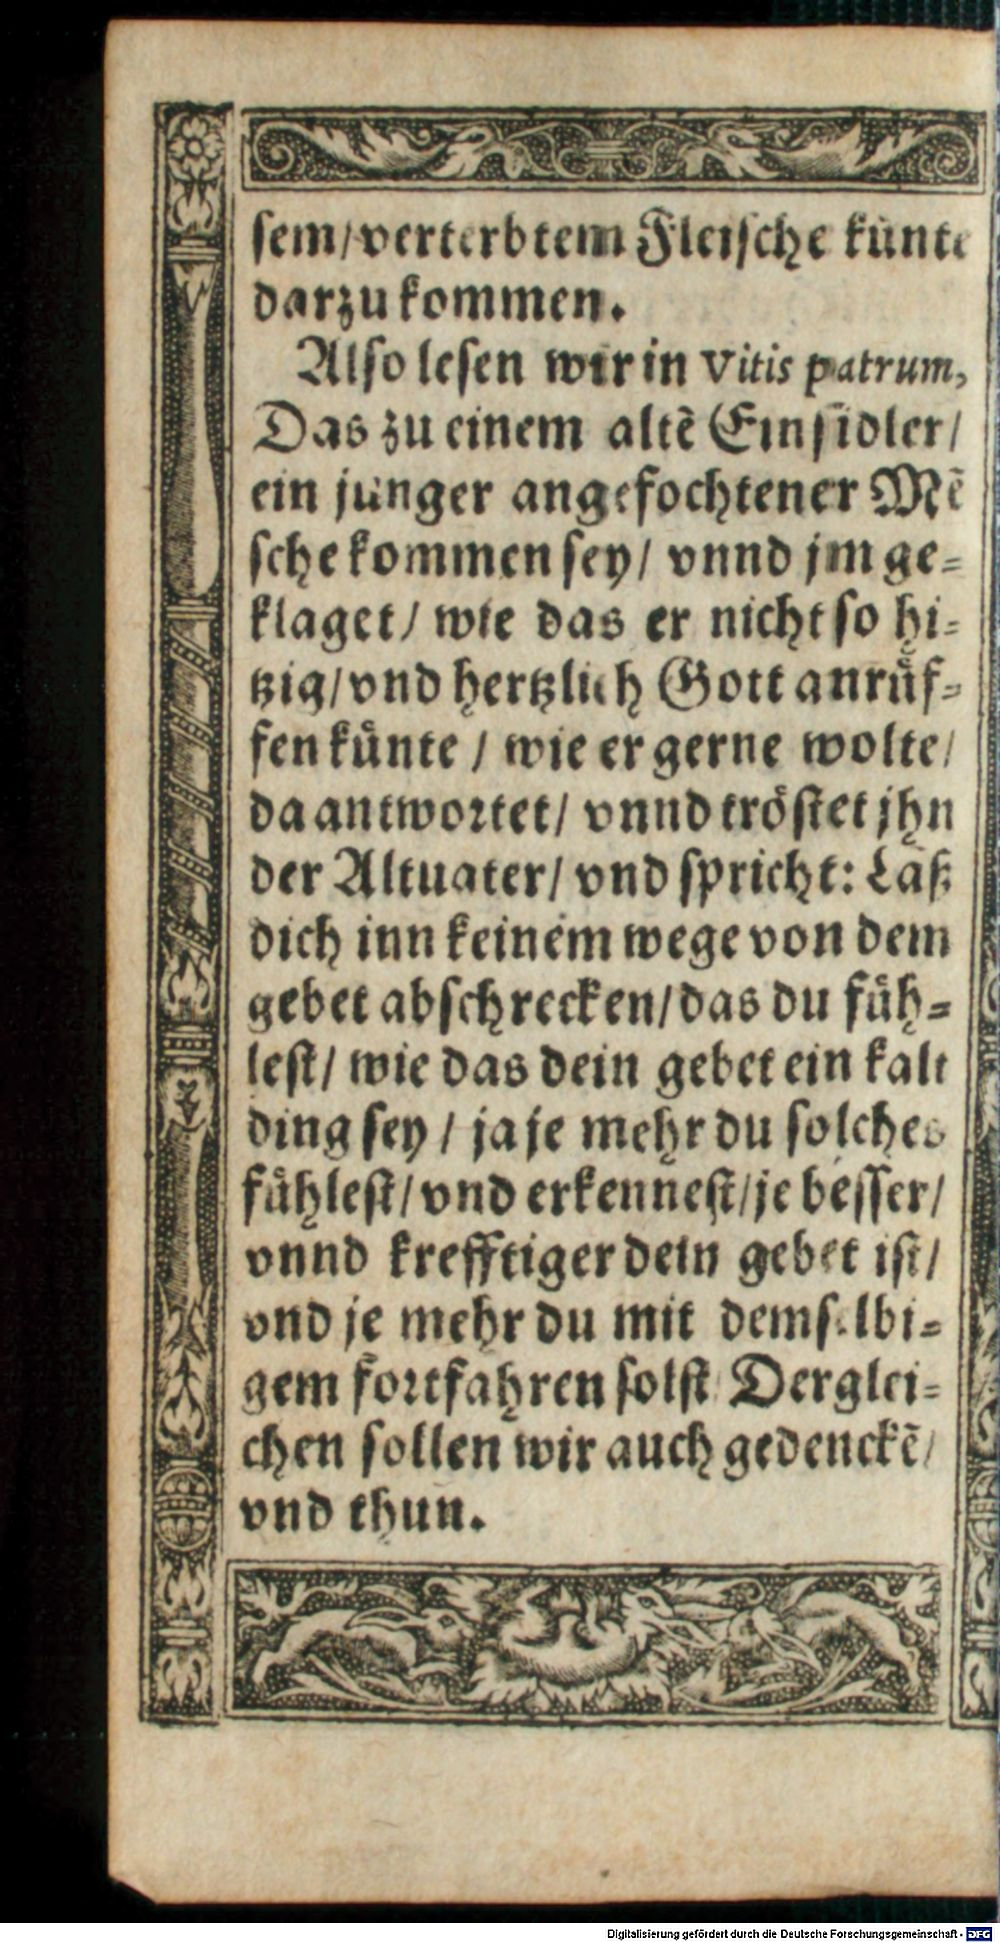 sem/verterbtem Fleische künte
darzu kommen.
Also lesen wir in Vitis patrum,
Das zu einem altẽ Einsidler/
ein junger angefochtener Mẽ
sche kommen sey/ vnnd jm ge=
klaget/ wie das er nicht so hi=
tzig/vnd hertzlich Gott anrůf=
fen kůnte / wie er gerne wolte/
da antwortet/ vnnd tröstet jhn
der Altuater/ vnd spricht: Laß
dich inn keinem wege von dem
gebet abschrecken/das du fůh=
lest/ wie das dein gebet ein kalt
ding sey / ja je mehr du solches
fůhlest/vnd erkennest/je besser/
vnnd krefftiger dein gebet ist/
vnd je mehr du mit demselbi=
gem fortfahren solst Derglei=
chen sollen wir auch gedenckẽ/
vnd thun.
Digitalisierung gefördert durch die Deutsche Forschungsgemeinschaft - DFG